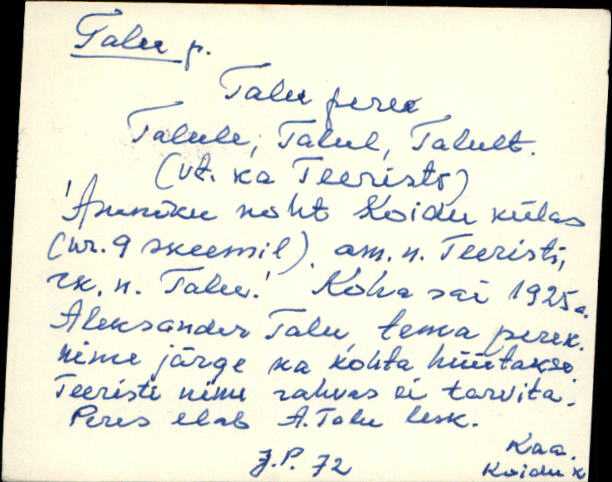 Talu p.
Talu pere
Talule, Talul, Talult.
(vt. ka Teeristi)
'Asuniku koht Koidu külas
(nr. 9 skeemil). am. n. Teeristi,
rk. n. Talu.' Koha sai 1925a.
Aleksander Talu, tema perek.
nime järge ka kohta hüütakse.
Teeristi nime rahvas ei tarvita.
Peres elab A. Talu lesk.
J.P. 72
Kaa.
Koidu k